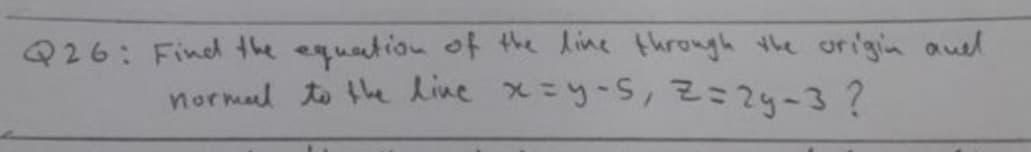 Q26: Find the equation of the line through the origin and
normal to the line x=y-5, z=2y-3?